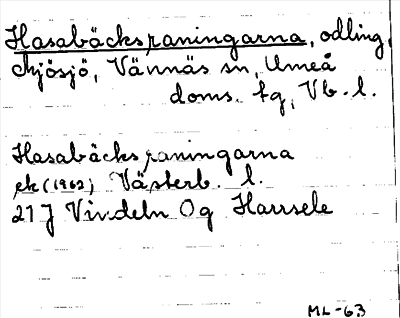 Hasabäcksraningarna, odling,
Mjösjö, Vännäs sn, Umeå
doms. tg, Vb. l.
Hasabäcksraningarna
ek (1962) Västerb. l.
21 J Vindeln Og Harrsele
ML-63